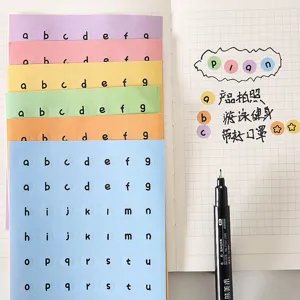 a b c d e f g
a b c d e f g
a b c d e f g
a b c d e f g
a b c d e f g
a b c d e f g
a b c d e f g
h i j k l m n
h i j k l m n
o p q r s t u
o p q r s t u
plan
a 产品拍照
b 游泳健身
c 带好口罩